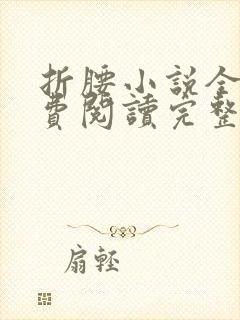 折腰小說全
費閱讀完整
扇輕